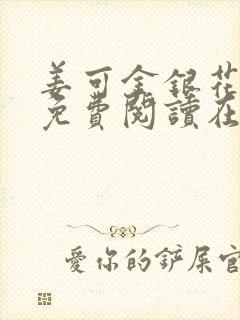 姜可金銀花
免費閱讀在
愛你的鏟屎官